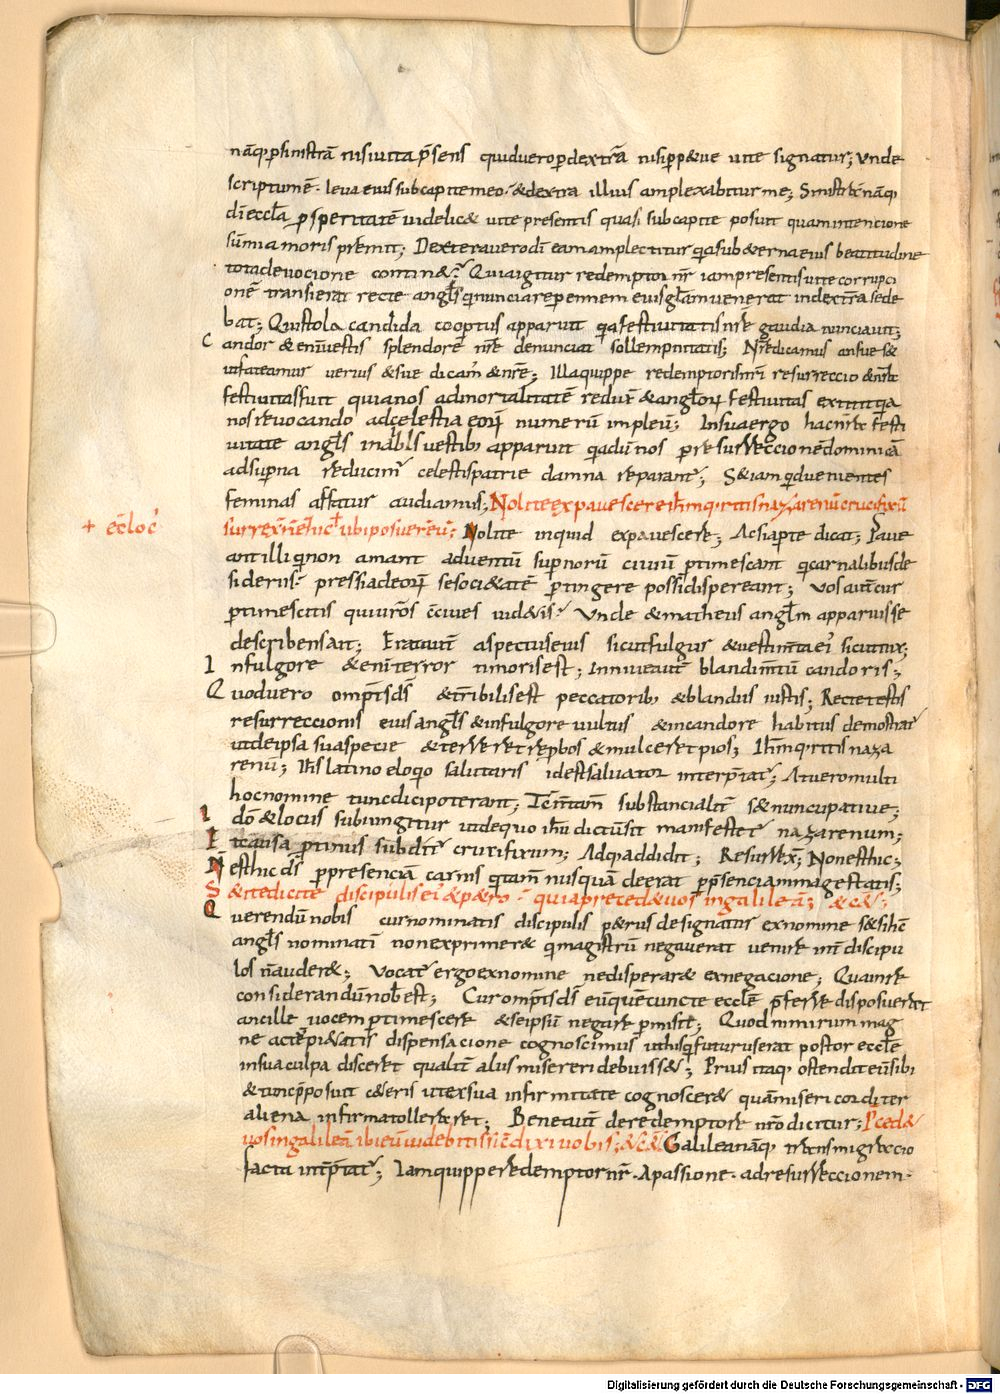 nāq; ꝑ sinistrā nisi uita p̄sens quid uero ꝑ dextrā nisi ꝑpetue uite signatur; Vnde
scriptum ē. leua eius sub capite meo. & dextra illius amplexabitur me; Sinistrā nāq;
dī eccl̄a ꝓsperitatē uidelic& uite presentis quasi sub capite posuit quam intencione
sūmi amoris p̄mit; Dextera uero dī eam amplectitur q̄a sub &erna eius beatitudine
tota deuocione contin&ur; Quia igitur redemptor nr̄ iam presentis uite corrupci
onē transierat recte angl̄s q̄ nunciare ꝑennem eius gl̄am uenerat in dextr̄a sede
bat; Qui stola candida coopt̄us apparuit q̄a festiuitatis nr̄e gaudia nunciauit;
Candor &eni uestis splendorē nr̄e denunciat sollempnitatis; Nr̄e dicamus an sue s&
ut fateamur uerius & sue dicam̄ & nr̄e; Illa quippe redemptoris nr̄i resurreccio & nr̄a
festiuitas fuit quia nos ad inmortalitatē redux̄ & angl̄oꝝ festiuitas extitit q̄a
nos reuocando ad celestia eoꝝ numerū impleuī; In sua ergo hac nr̄e festi
uitate angl̄s in alb̄is uestib; apparuit q̄a dū nos ꝑ resurreccionē dominicā
ad suꝑna reducim̄ celestis patrie damna reparant̄; S& iam q̄d uenientes
feminas affatur audiamus; Nolite expauescere ih̄m q̄ritis nazarenū crucifixū
surrex̄ n̄ ē hic ecce loc' ubi posuer̄ eū; Nolite inquid expauescere; Ac si aꝑte dicat; Paue
ant illi q̄ non amant aduentū suꝑnorū ciuiū ꝑtimescant q̄ carnalibus de
sideriis pressi ad eoꝝ se soci&atē ꝑtingere posse disperant; Vos aut̄ cur
ꝑtimescitis qui ur̄os c̄ciues uid&is; Vnde & matheus angl̄m apparuisse
describens ait; Erat aut̄ aspectus eius sicut fulgur & uestim̄ta ei' sicut nix;
In fulgore &eni terror timoris est; In niue aut̄ blandim̄tū candoris;
Quo d̄ uero omp̄s d̄s & t̄ribilis est peccatorib; & blandus iustis; Recte testis
resurreccionis eius angl̄s & in fulgore uultus & in candore habitus demostrat̄
ut de ipsa sua specie & terreret reprobos & mulceret pios; Ih̄m q̄ritis naza
renū; Ih̄s latino eloq̄o salutaris id est salvator interp̄tat̄; At uero multi
hoc nomine tunc dici poterant; Te n̄ tam̄ substancialit̄ s& nuncupatiue;
Ido & locus subiungitur ut de quo ih̄u dictū sit manifestet̄ nazarenum;
Et causa ꝑtinus subdit̄ crucifixum; Adq; addidit; Resurrex̄; Non est hic;
Nō est hic d̄s ꝑ presenciā carnis q̄ tam̄ nusquā deerat ꝑ p̄senciam magestatis;
S& ite dicite discipulis ei' & p&ro quia preced& uos in galileā; &c&;
Querendū nobis cur nominatis discipulis p&rus designatur ex nomine s& si hūc
angl̄s nominatī non exprimer& q̄ magistrū negauerat uenire int̄ discipu
los n̄ auder&; Vocat̄ ergo ex nomine ne disperar& ex negacione; Qua in re
considerandū nob̄ est; Cur omp̄s d̄s eū quē cuncte eccl̄e p̄ferre disposuerat
ancille uocem ꝑtimescere & se ipsū negare ꝑmisit; Quod nimirum mag
ne actū pi&atis dispensacione cognoscimus ut his q̄ futurus erat pastor eccl̄e
in sua culpa disceret qualit̄ aliis misereri debuiss&; Prius itaq; ostendit eū sibi
& tunc p̄posuit c&eris ut ex sua infirmitate cognoscer& quā misericorditer
aliena infirma tolleraret; Bene aut̄ de redemptore nr̄o dicitur; P̄ced&
uos in galileā ibi eū uidebitis sic dixi uobis; &c& Galilea nāq; tr̄ansmigraccio
facta int̄p̄tat̄; Iam quippe redemptor nr̄. A passione. ad resurreccionem.
Digitalisierung gefördert durch die Deutsche Forschungsgemeinschaft - DFG